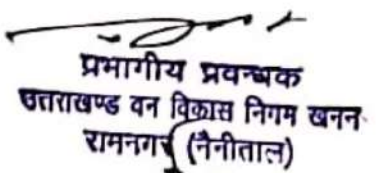 प्रभागीय प्रवन्धक
उत्तराखण्ड वन विकास निगम खनन
रामनगर (नैनीताल)